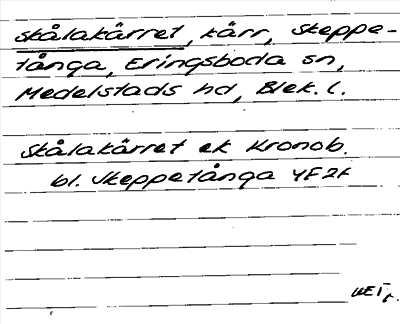 Skålakärret, kärr, Skeppe-
tånga, Eringsboda sn,
Medelstads hd, Blek. l.
Skålakärret ek Kronob.
bl. Skeppetånga 4F2f